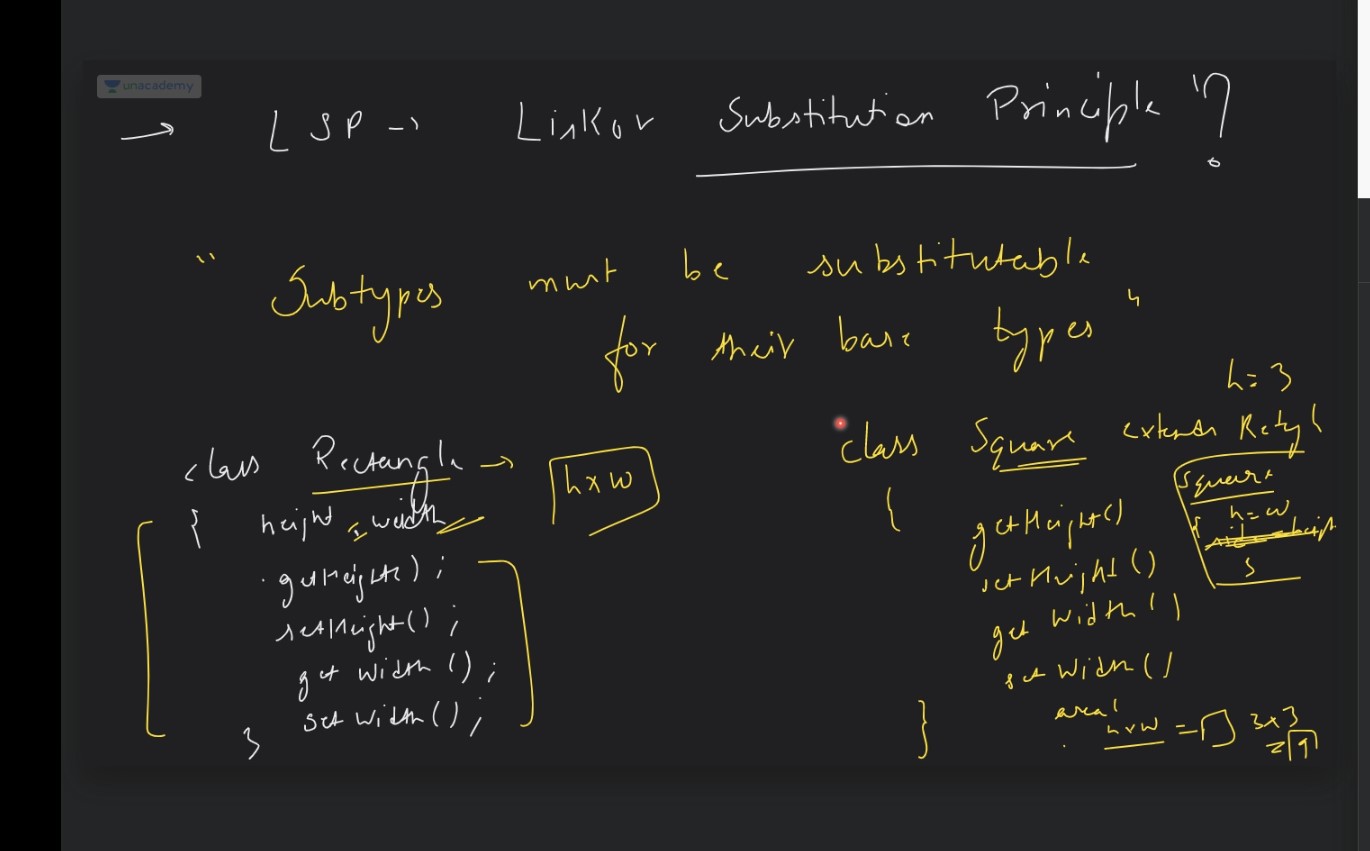 unacademy
→ LSP → Liskov Substitution Principle "?
" Subtypes must be substitutable
for their base types "
class Rectangle → h x w
{ height, width
getHeight();
setHeight();
getWidth();
setWidth();
}
h = 3
class Square extends
{
getHeight()
setHeight()
getWidth()
setWidth()
area
h x w = 3x3
= 9
}
Square
{ h = w
}